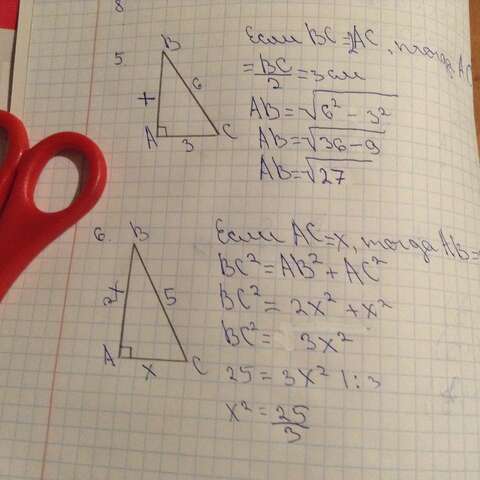 8
5.
B
6
x
A
3
C
Если BC=2AC, тогда AC
= BC/2 = 3см
AB = √6² - 3²
AB = √36-9
AB = √27
6.
B
2x
5
A
x
C
Если AC=x, тогда AB=
BC² = AB² + AC²
BC² = 2x² + x²
BC² = 3x²
25 = 3x² |:3
x² = 25/3